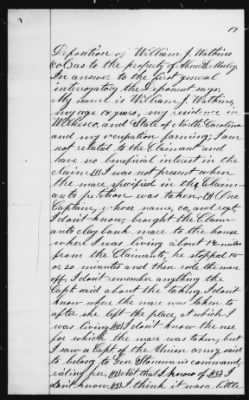 Deposition of William J. Watkins
Co Cas to the property of
In answer to the first general
interrogatory, the Deponent says
My name is William J. Watkins,
my age 18 years, my residence in
and State of North Carolina
and my occupation farming; I am
not related to the Claimant and
have no beneficial interest in the
claim I was not present when
the mare specified in the Claim-
ants petition was taken. One
Captain, whose name, co, and regt,
I don't know, bought the Claim-
ants clay bank mare to the house
where I was living about miles
from the Claimants, he stopped 15
or 20 minutes and then rode the mare
off, I don't remember anything the
Capt said about the taking I don't
know where the mare was taken to
after she left the place, at which I
was living I don't know the use
for which the mare was taken, but
I saw a Capt of the Union army said
to belong to Gen Stoneman's command,
riding her, Not that I know of I
don't know. I think it was a little